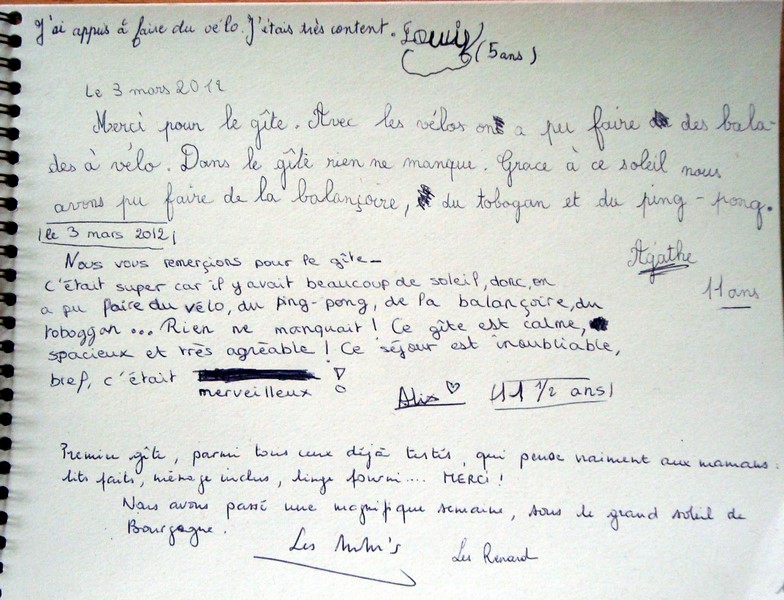 J'ai appris à faire du vélo. J'étais très content. Louis (5 ans)
Le 3 mars 2012
Merci pour le gîte. Avec les vélos on a pu faire des bala-
des à vélo. Dans le gîte rien ne manque. Grace à ce soleil nous
avons pu faire de la balançoire, du tobogan et du ping-pong.
le 3 mars 2012
Agathe
11 ans
Nous vous remerçions pour le gîte_
C'était super car il y avait beaucoup de soleil, donc, on
a pu faire du vélo, du ping-pong, de la balançoire, du
toboggan... Rien ne manquait ! Ce gîte est calme,
spacieux et très agréable ! Ce séjour est inoubliable,
bref, c'était merveilleux !
Alix ♡ (11 1/2 ans)
Premier gîte, parmi tous ceux déjà testés, qui pense vraiment aux mamans :
lits faits, ménage inclus, linge fourni.... MERCI !
Nous avons passé une magnifique semaine, sous le grand soleil de
Bourgogne.
Les Les Renard